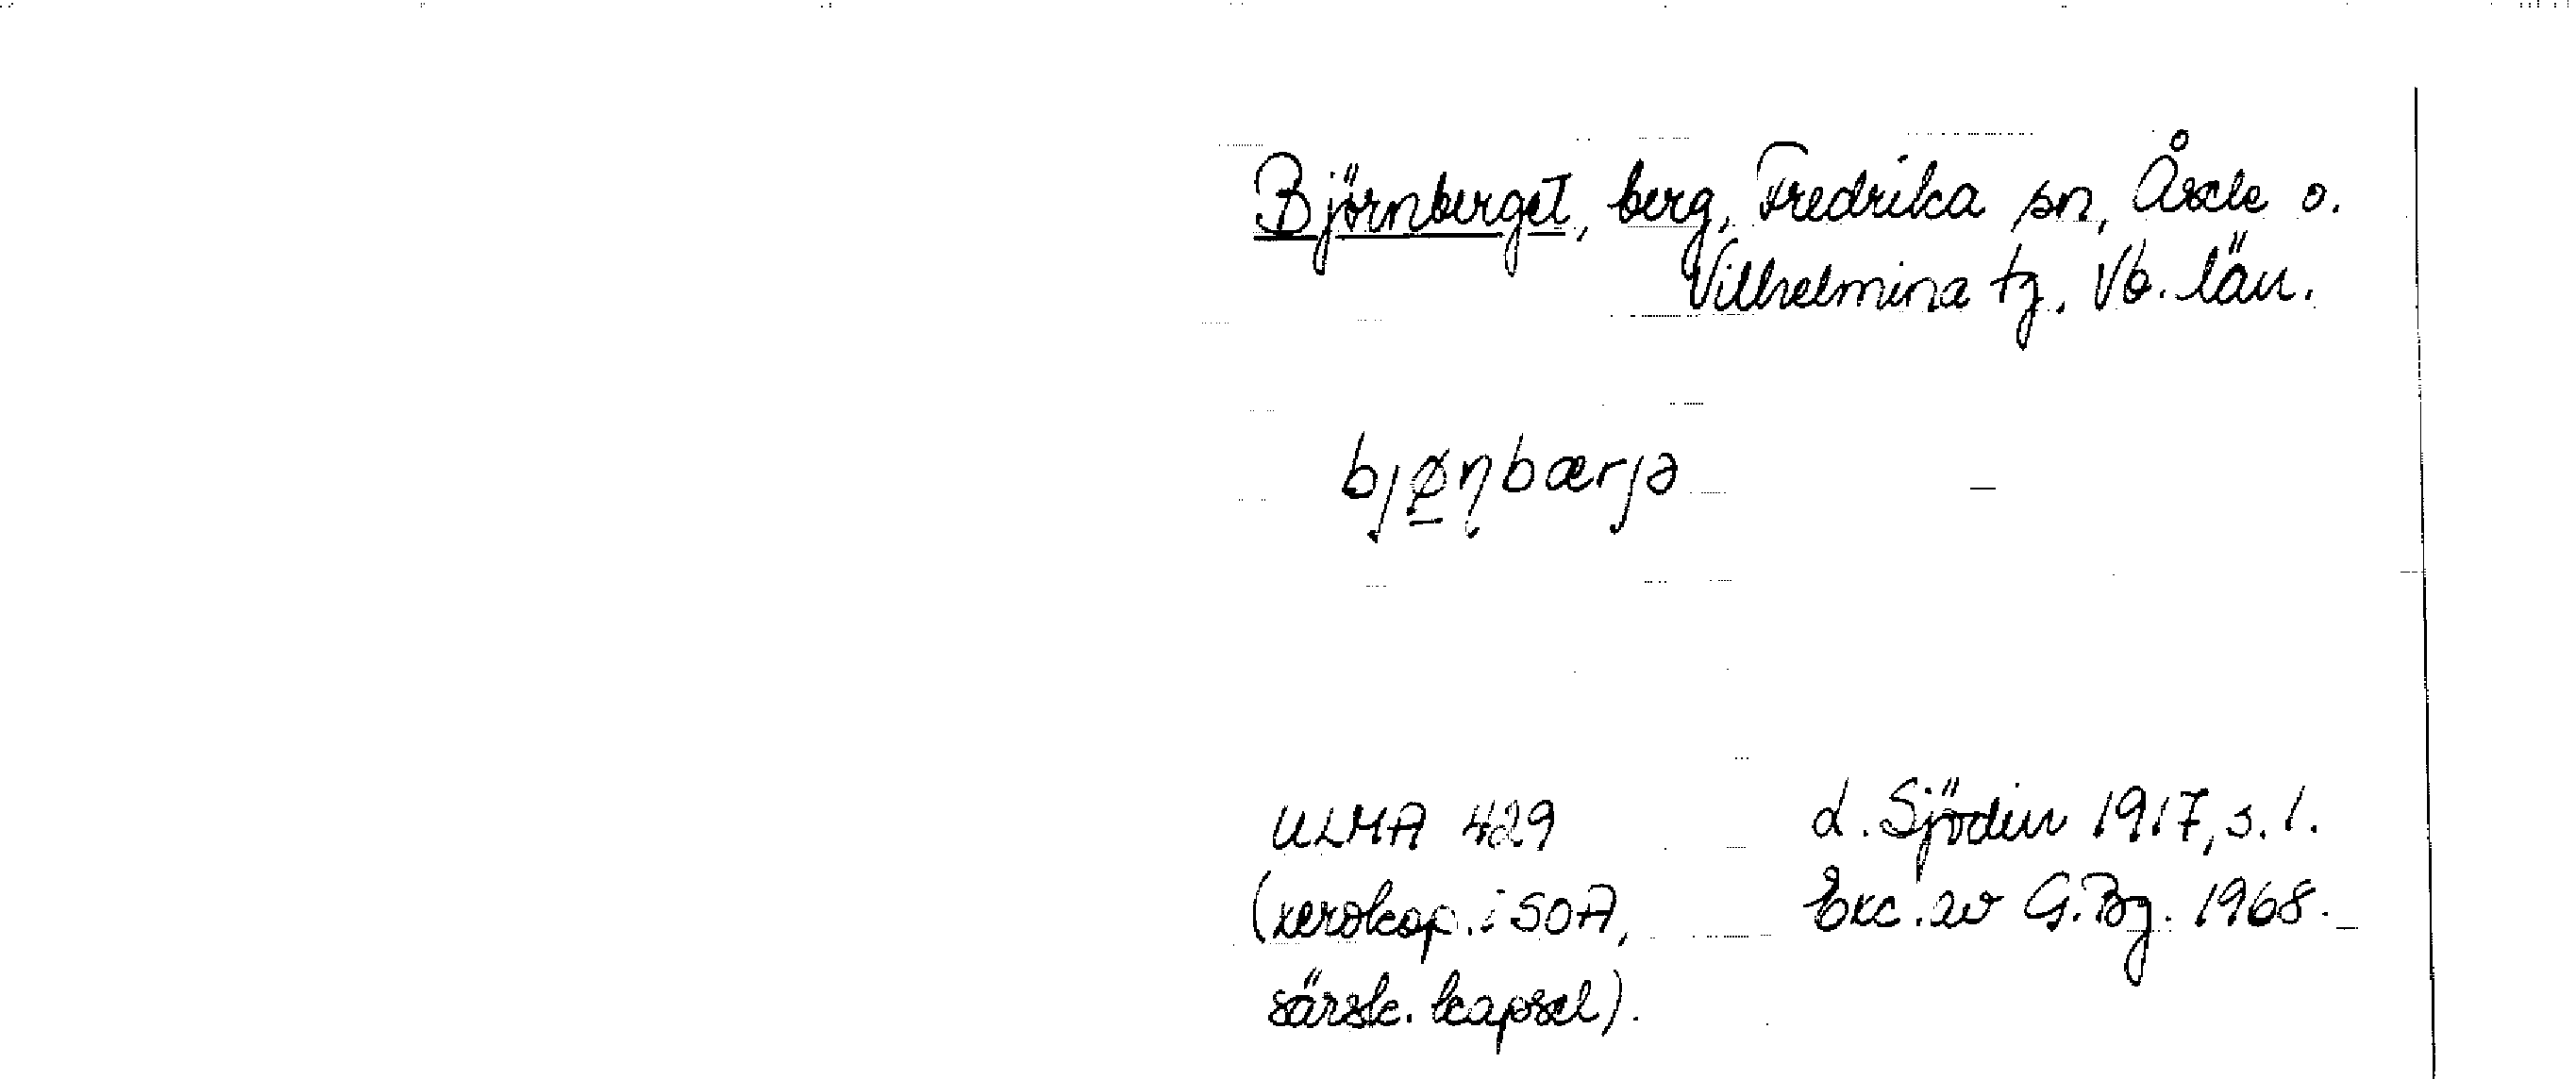 Björnberget, berg, Fredrika sn, Åsele o.
Vilhelmina tg. Vb. län.
bjø̲ɳbærjə
ULMA 429
(xerokop. i SOA,
särsk. kapsel).
L. Sjödin 1917, s. 1.
Exc. av G. Bg. 1968.